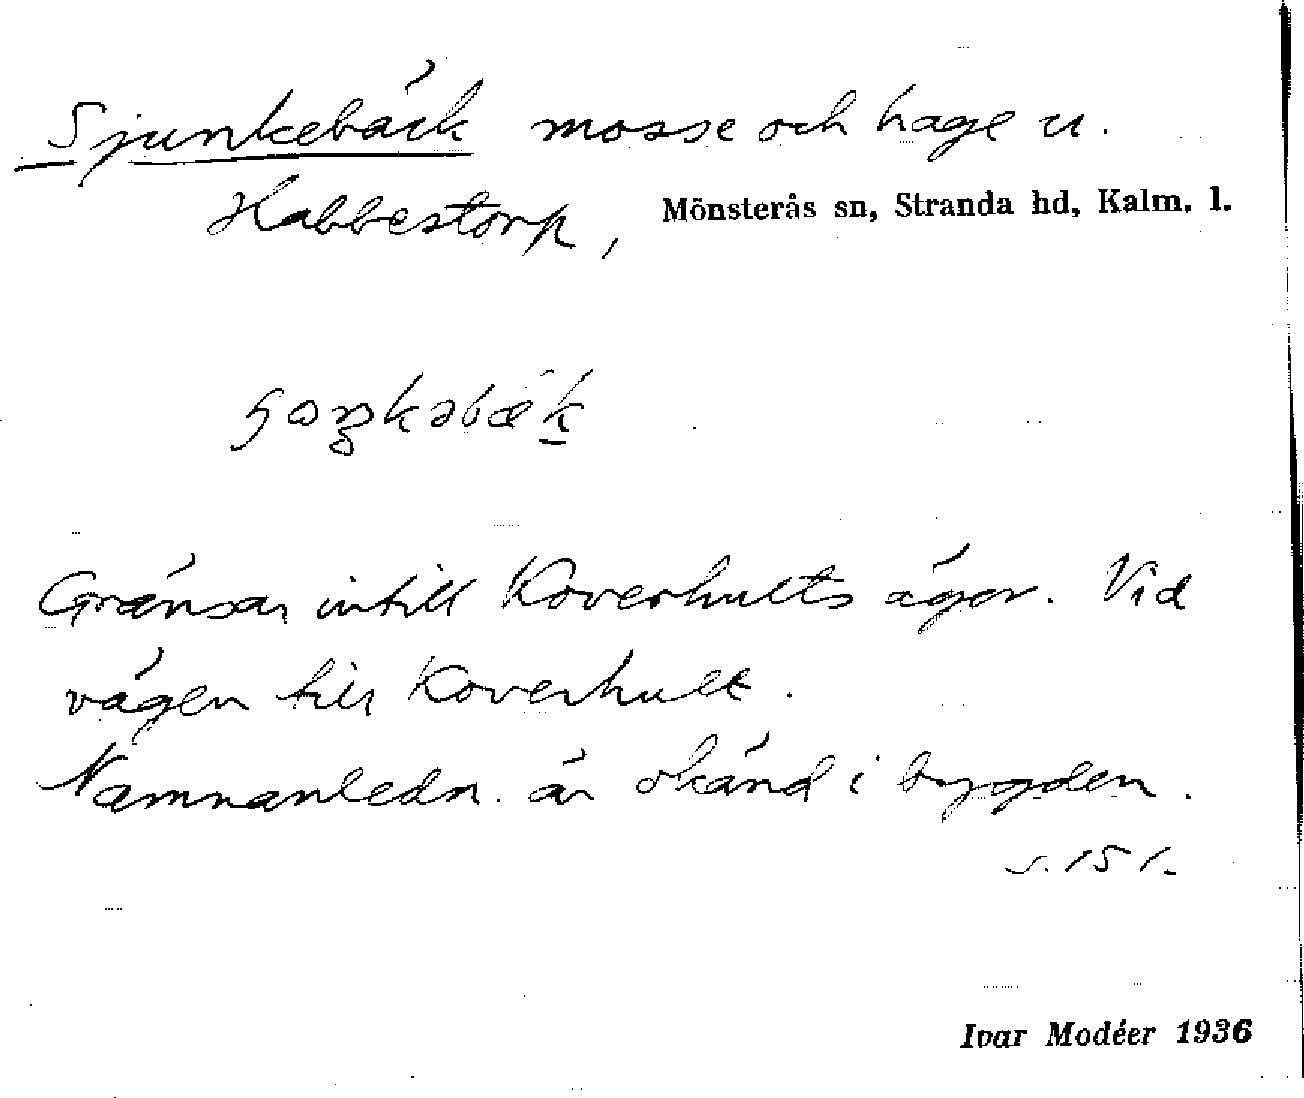 Sjunkebäck mosse och hage u.
Habbestorp, Mönsterås sn, Stranda hd, Kalm. l.
Gränsar intill Koverhults ägor. Vid
vägen till Koverhult.
Namnanledn. är okänd i bygden.
s. 151.
Ivar Modéer 1936